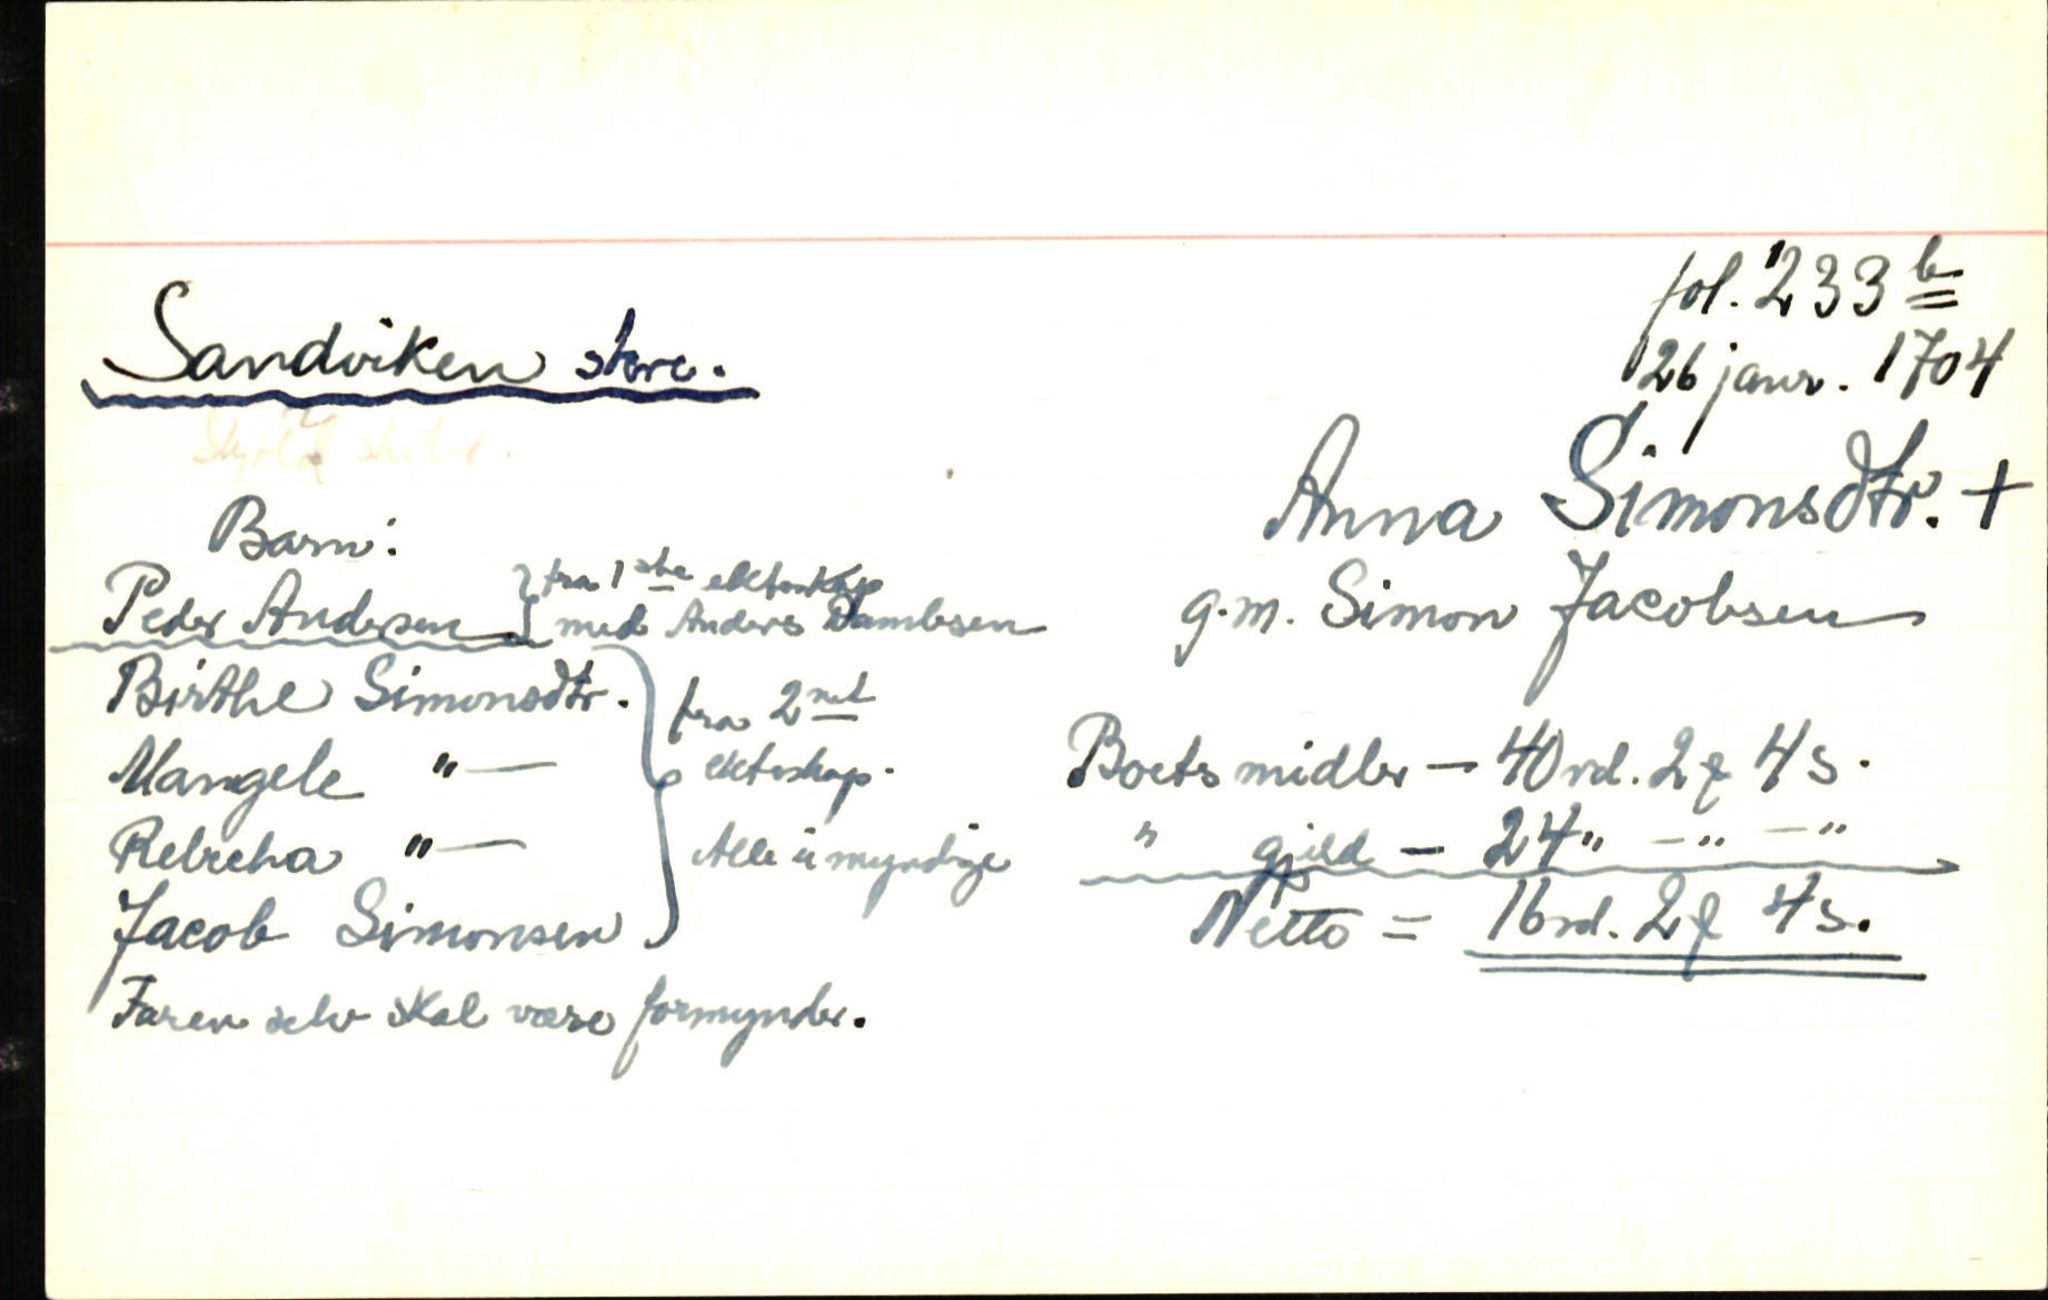 fol. 233 b
Sandviken store.
26 janr. 1704
Anna Simonsdtr. +
g.m. Simon Jacobsen
Barn:
Peder Andersen } fra 1ste ekteskap
med Anders
Birthe Simonsdtr.
Mangele "—
Rebecha "—
Jacob Simonsen
fra 2net
ekteskap.
Alle umyndige
Faren selv skal være formynder.
Boets midler — 40 rd. 2 ƒ 4 s.
" gjeld — 24 " — " — "
Netto = 16 rd. 2 ƒ 4 s.